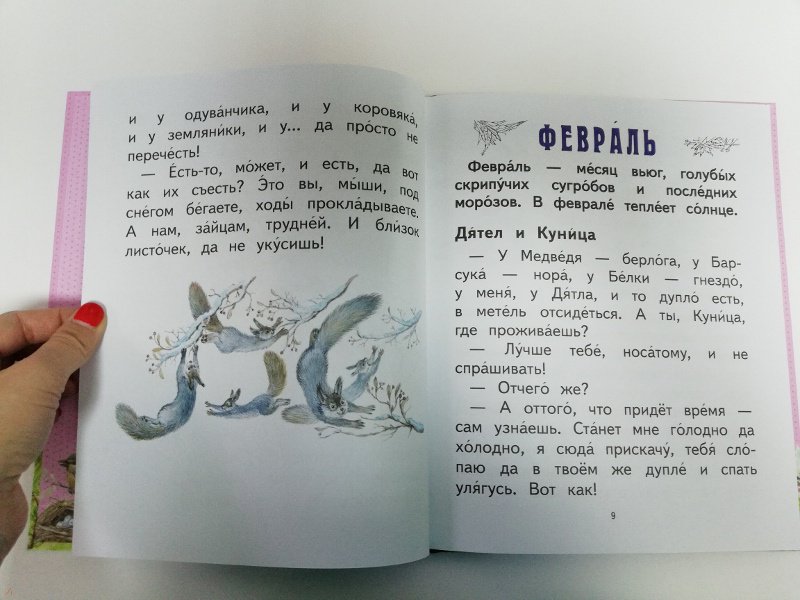 и у одува́нчика, и у коровяка́,
и у земляни́ки, и у... да про́сто не
перече́сть!
— Е́сть-то, мо́жет, и есть, да вот
как их съесть? Э́то вы, мы́ши, под
сне́гом бе́гаете, ходы́ прокла́дываете.
А нам, за́йцам, трудне́й. И бли́зок
листо́чек, да не уку́сишь!
ФЕВРА́ЛЬ
Февра́ль — ме́сяц вьюг, голубы́х
скрипу́чих сугро́бов и после́дних
моро́зов. В феврале́ тепле́ет со́лнце.
Дя́тел и Куни́ца
— У Медве́дя — берло́га, у Бар-
сука́ — нора́, у Бе́лки — гнездо́,
у меня́, у Дя́тла, и то дупло́ есть,
в мете́ль отсиде́ться. А ты, Куни́ца,
где прожива́ешь?
— Лу́чше тебе́, носа́тому, и не
спра́шивать!
— Отчего́ же?
— А оттого́, что придёт вре́мя —
сам узна́ешь. Ста́нет мне го́лодно да
хо́лодно, я сюда́ прискачу́, тебя́ сло-
па́ю да в твоём же дупле́ и спать
уля́гусь. Вот как!
9